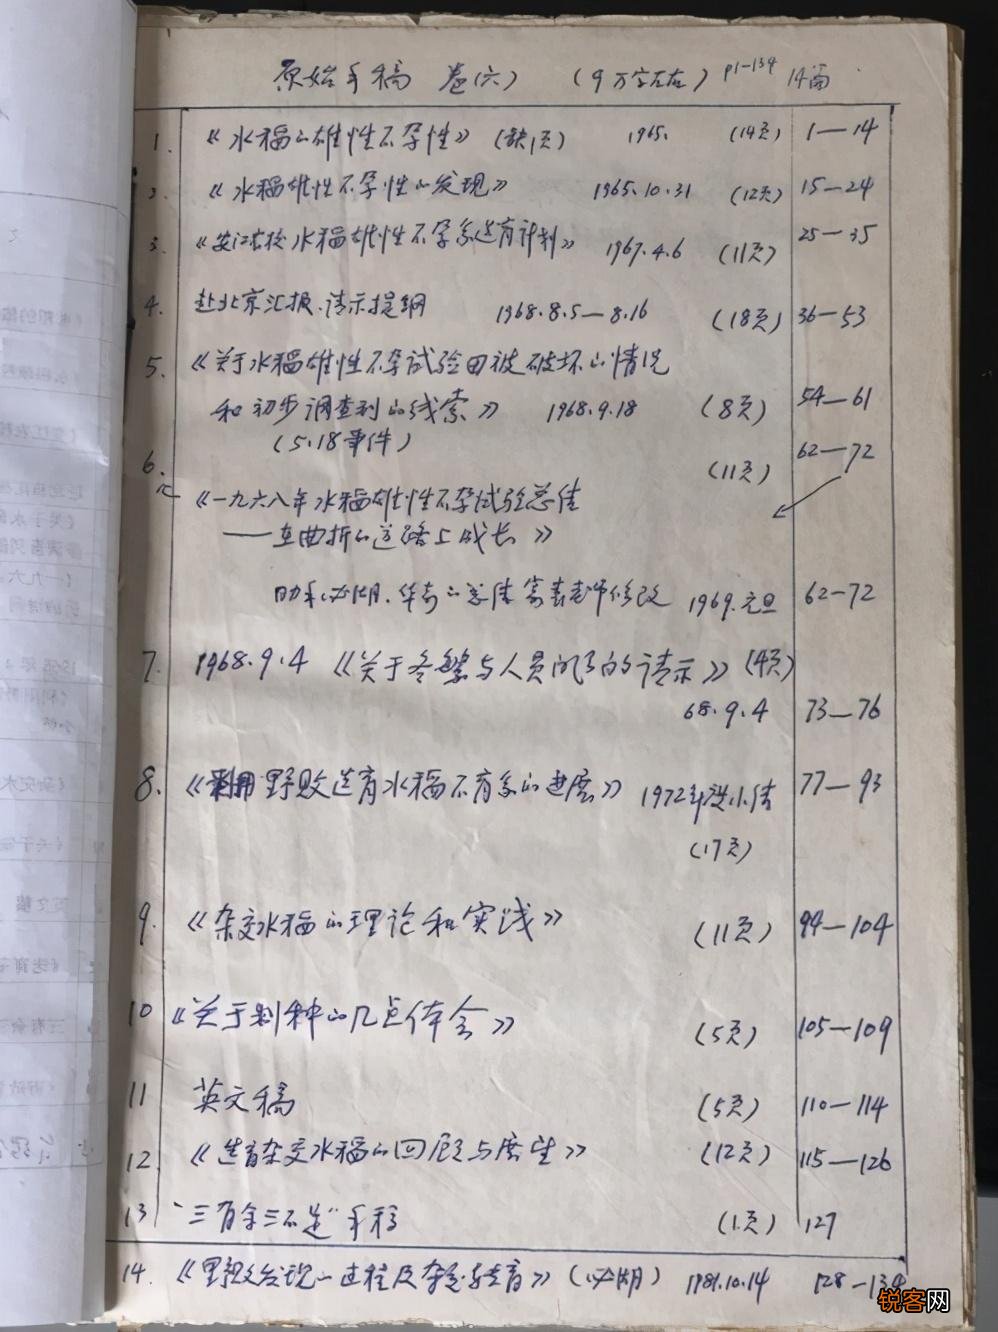 原始手稿 卷(六) (9万字左右) P1-134 14篇
1. 《水稻的雄性不孕性》(缺1页) 1965. (14页) 1—14
2. 《水稻雄性不孕性的发现》 1965.10.31 (12页) 15—24
3. 《安江农校水稻雄性不孕系选育计划》 1967.4.6 (11页) 25—35
4. 赴北京汇报、请示提纲 1968.8.5—8.16 (18页) 36—53
5. 《关于水稻雄性不孕试验田被破坏的情况
和初步调查到的线索》 1968.9.18 (8页) 54—61
(5.18事件)
6. (11页) 62—72
《一九六八年水稻雄性不孕试验总结
——在曲折的道路上成长》
助手必湖、华奇的总结 袁老师修改 1969.元旦 62—72
7. 1968.9.4 《关于冬繁与人员问题的请示》(4页)
68.9.4 73—76
8. 《利用野败选育水稻不育系的进展》 1972年小结 77—93
(17页)
9. 《杂交水稻的理论和实践》 (11页) 94—104
10 《关于制种的几点体会》 (5页) 105—109
11 英文稿 (5页) 110—114
12. 《选育杂交水稻的回顾与展望》 (12页) 115—126
13 "三有余三不足"手稿 (1页) 127
14. 《野败发现的过程及杂交育》(必湖) 1981.10.14 128—134
锐客网